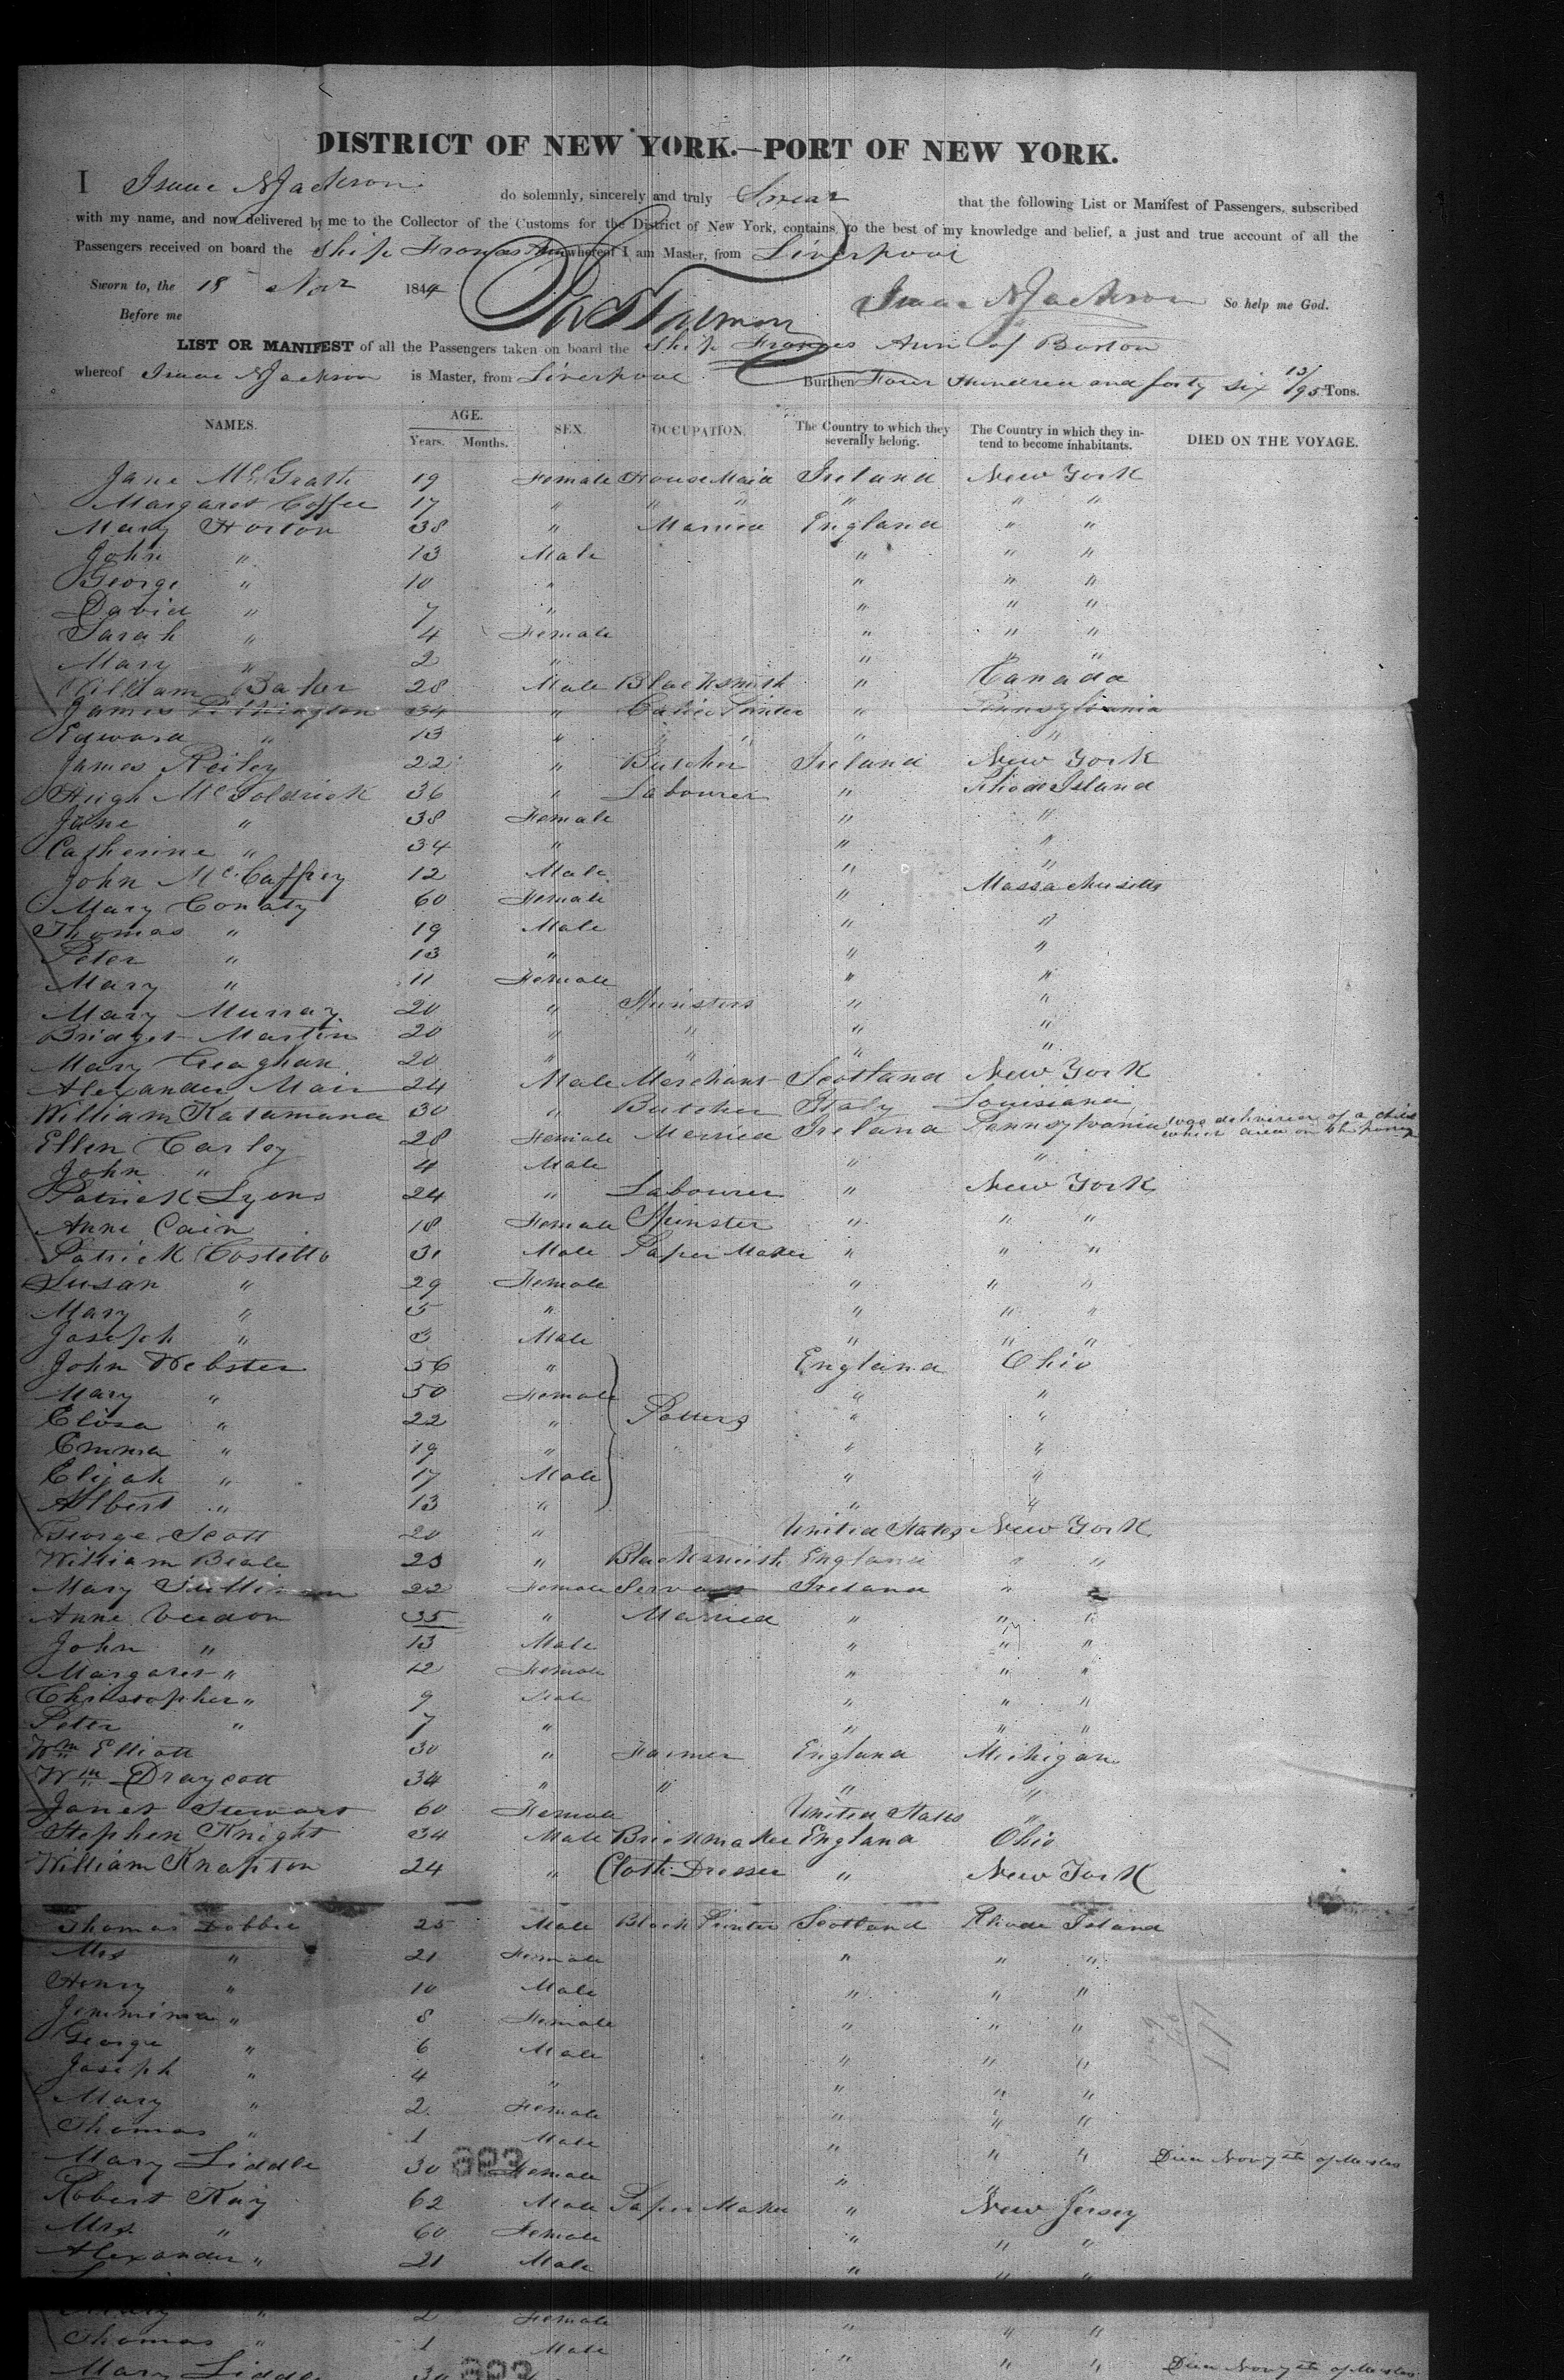 DISTRICT OF NEW YORK.—PORT OF NEW YORK.
I Isaac N Jackson do solemnly, sincerely and truly Swear that the following List or Manifest of Passengers, subscribed
with my name, and now delivered by me to the Collector of the Customs for the District of New York, contains, to the best of my knowledge and belief, a just and true account of all the
Passengers received on board the Ship Frances Ann whereof I am Master, from Liverpool
Sworn to, the 18 Nov 1844 Isaac N Jackson So help me God.
Before me
LIST OR MANIFEST of all the Passengers taken on board the Ship Frances Ann of Boston
whereof Isaac N Jackson is Master, from Liverpool Burthen Four Hundred and forty six 13/95 Tons.
NAMES. AGE. Years. Months. SEX. OCCUPATION. The Country to which they severally belong. The Country in which they intend to become inhabitants. DIED ON THE VOYAGE.
Jane McGrath 19 Female House Maid Ireland New York
Margaret Coffee 17 " " " " " "
Mary Horton 38 " Married England " "
John " 13 Male " " "
George " 10 " " " "
David " 7 " " " "
Sarah " 4 Female " " "
Mary " 2 " " " "
William Baker 28 Male Blacksmith " Canada
James 34 " Calico Printer " Pennsylvania
Edward " 13 " " " " "
James Reiley 22 " Butcher Ireland New York
Hugh McGoldrick 36 " Labourer " Rhode Island
Jane " 38 Female " "
Catherine " 34 " " "
John McCaffrey 12 Male " "
Mary Conaty 60 Female " Massachusetts
Thomas " 19 Male " "
Peter " 13 " " "
Mary " 11 Female " "
Mary Murray 20 " Spinsters " "
Bridget Martin 20 " " " "
Mary Geaghan 20 " " " "
Alexander Mair 24 Male Merchant Scotland New York
William Katamana 30 " Butcher Italy Louisiana
Ellen Carley 28 Female Married Ireland Pennsylvania was deliverien of a child which died on the
John " 4 Male " "
Patrick Lyons 24 " Labourer " New York
Anne Cain 18 Female Spinster " " "
Patrick Costello 31 Male Paper Maker " " "
Susan " 29 Female " " "
Mary " 5 " " " "
Joseph " 3 Male " " "
John Webster 56 " England Ohio
Mary " 50 Female " "
Eliza " 22 " Potters " "
Emma " 19 " " "
Elijah " 17 Male " "
Albert " 13 " " "
George Scott 20 " United States New York
William Beale 23 " Blacksmith England " "
Mary Sullivan 22 Female Servant Ireland " "
Anne Verdon 35 " Married " " "
John " 13 Male " " "
Margaret " 12 Female " " "
Christopher " 9 Male " " "
Peter " 7 " " " "
Wm Elliott 30 " Farmer England Michigan
Wm Draycott 34 " " " "
Janet Stewart 60 Female United States "
Stephen Knight 34 Male Brickmaker England Ohio
William Knapton 24 " Cloth Dresser " New York
Thomas Dobbie 25 Male Block Printer Scotland Rhode Island
Mrs " 21 Female " " "
Henry " 10 Male " " "
Jemmima " 8 Female " " "
George " 6 Male " " "
Joseph " 4 " " " "
Mary " 2 Female " " "
Thomas " 1 Male " " "
Mary Liddle 30 Female " " " Died Novr 7th of Measles
Robert Kay 62 Male Paper Maker " New Jersey
Mrs " 60 Female " " "
Alexander " 21 Male " " "
Mary " 2 Female " " "
Thomas " 1 Male " " "
Mary Liddle 30 " " Died Novr 7th of Measles